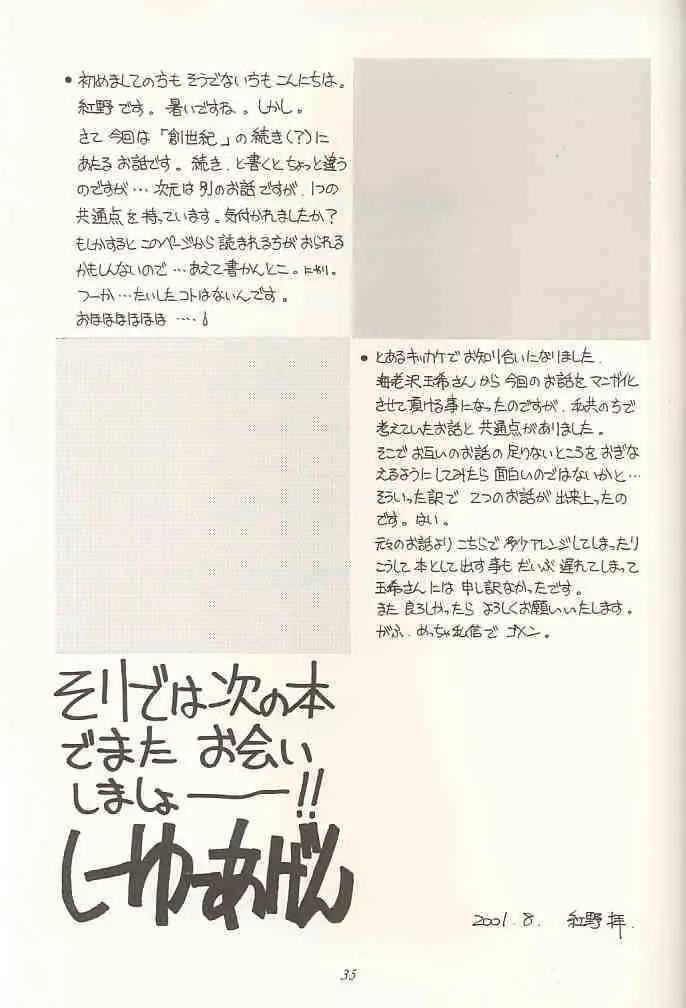 ●初めましての方も そうでない方も こんにちは。
紅野です。暑いですね。しかし。
さて 今回は「創世紀」の続き(?)に
あたるお話です。続き、と書くとちょっと違う
のですが…次元は別のお話ですが、1つの
共通点を持っています。気付かれましたか?
もしかすると このページから 読まれる方がおられる
かもしんないので…あえて書かんとこ。にやり。
つーか…たいしたコトはないんです。
おほほほほほほ…。!
●とあるキッカケで お知り合いになりました、
海老沢玉希さんから 今回のお話を マンガ化
させて頂ける事になったのですが、私共の方で
考えていたお話と 共通点がありました。
そこで お互いのお話の 足りないところを おぎな
えるように してみたら 面白いのではないかと…
そういった訳で 2つのお話が 出来上ったの
です。はい。
元々のお話より こちらで 多々アレンジしてしまったり
こうして 本として 出す事も だいぶ 遅れてしまって
玉希さんには 申し訳なかったです。
また 良ろしかったら よろしくお願いいたします。
がふ、めっちゃ私信で ゴメン。
そリでは次の本
でまた お会い
しましょ――!!
しーゆーあげん
2001.8. 紅野 拝.
35